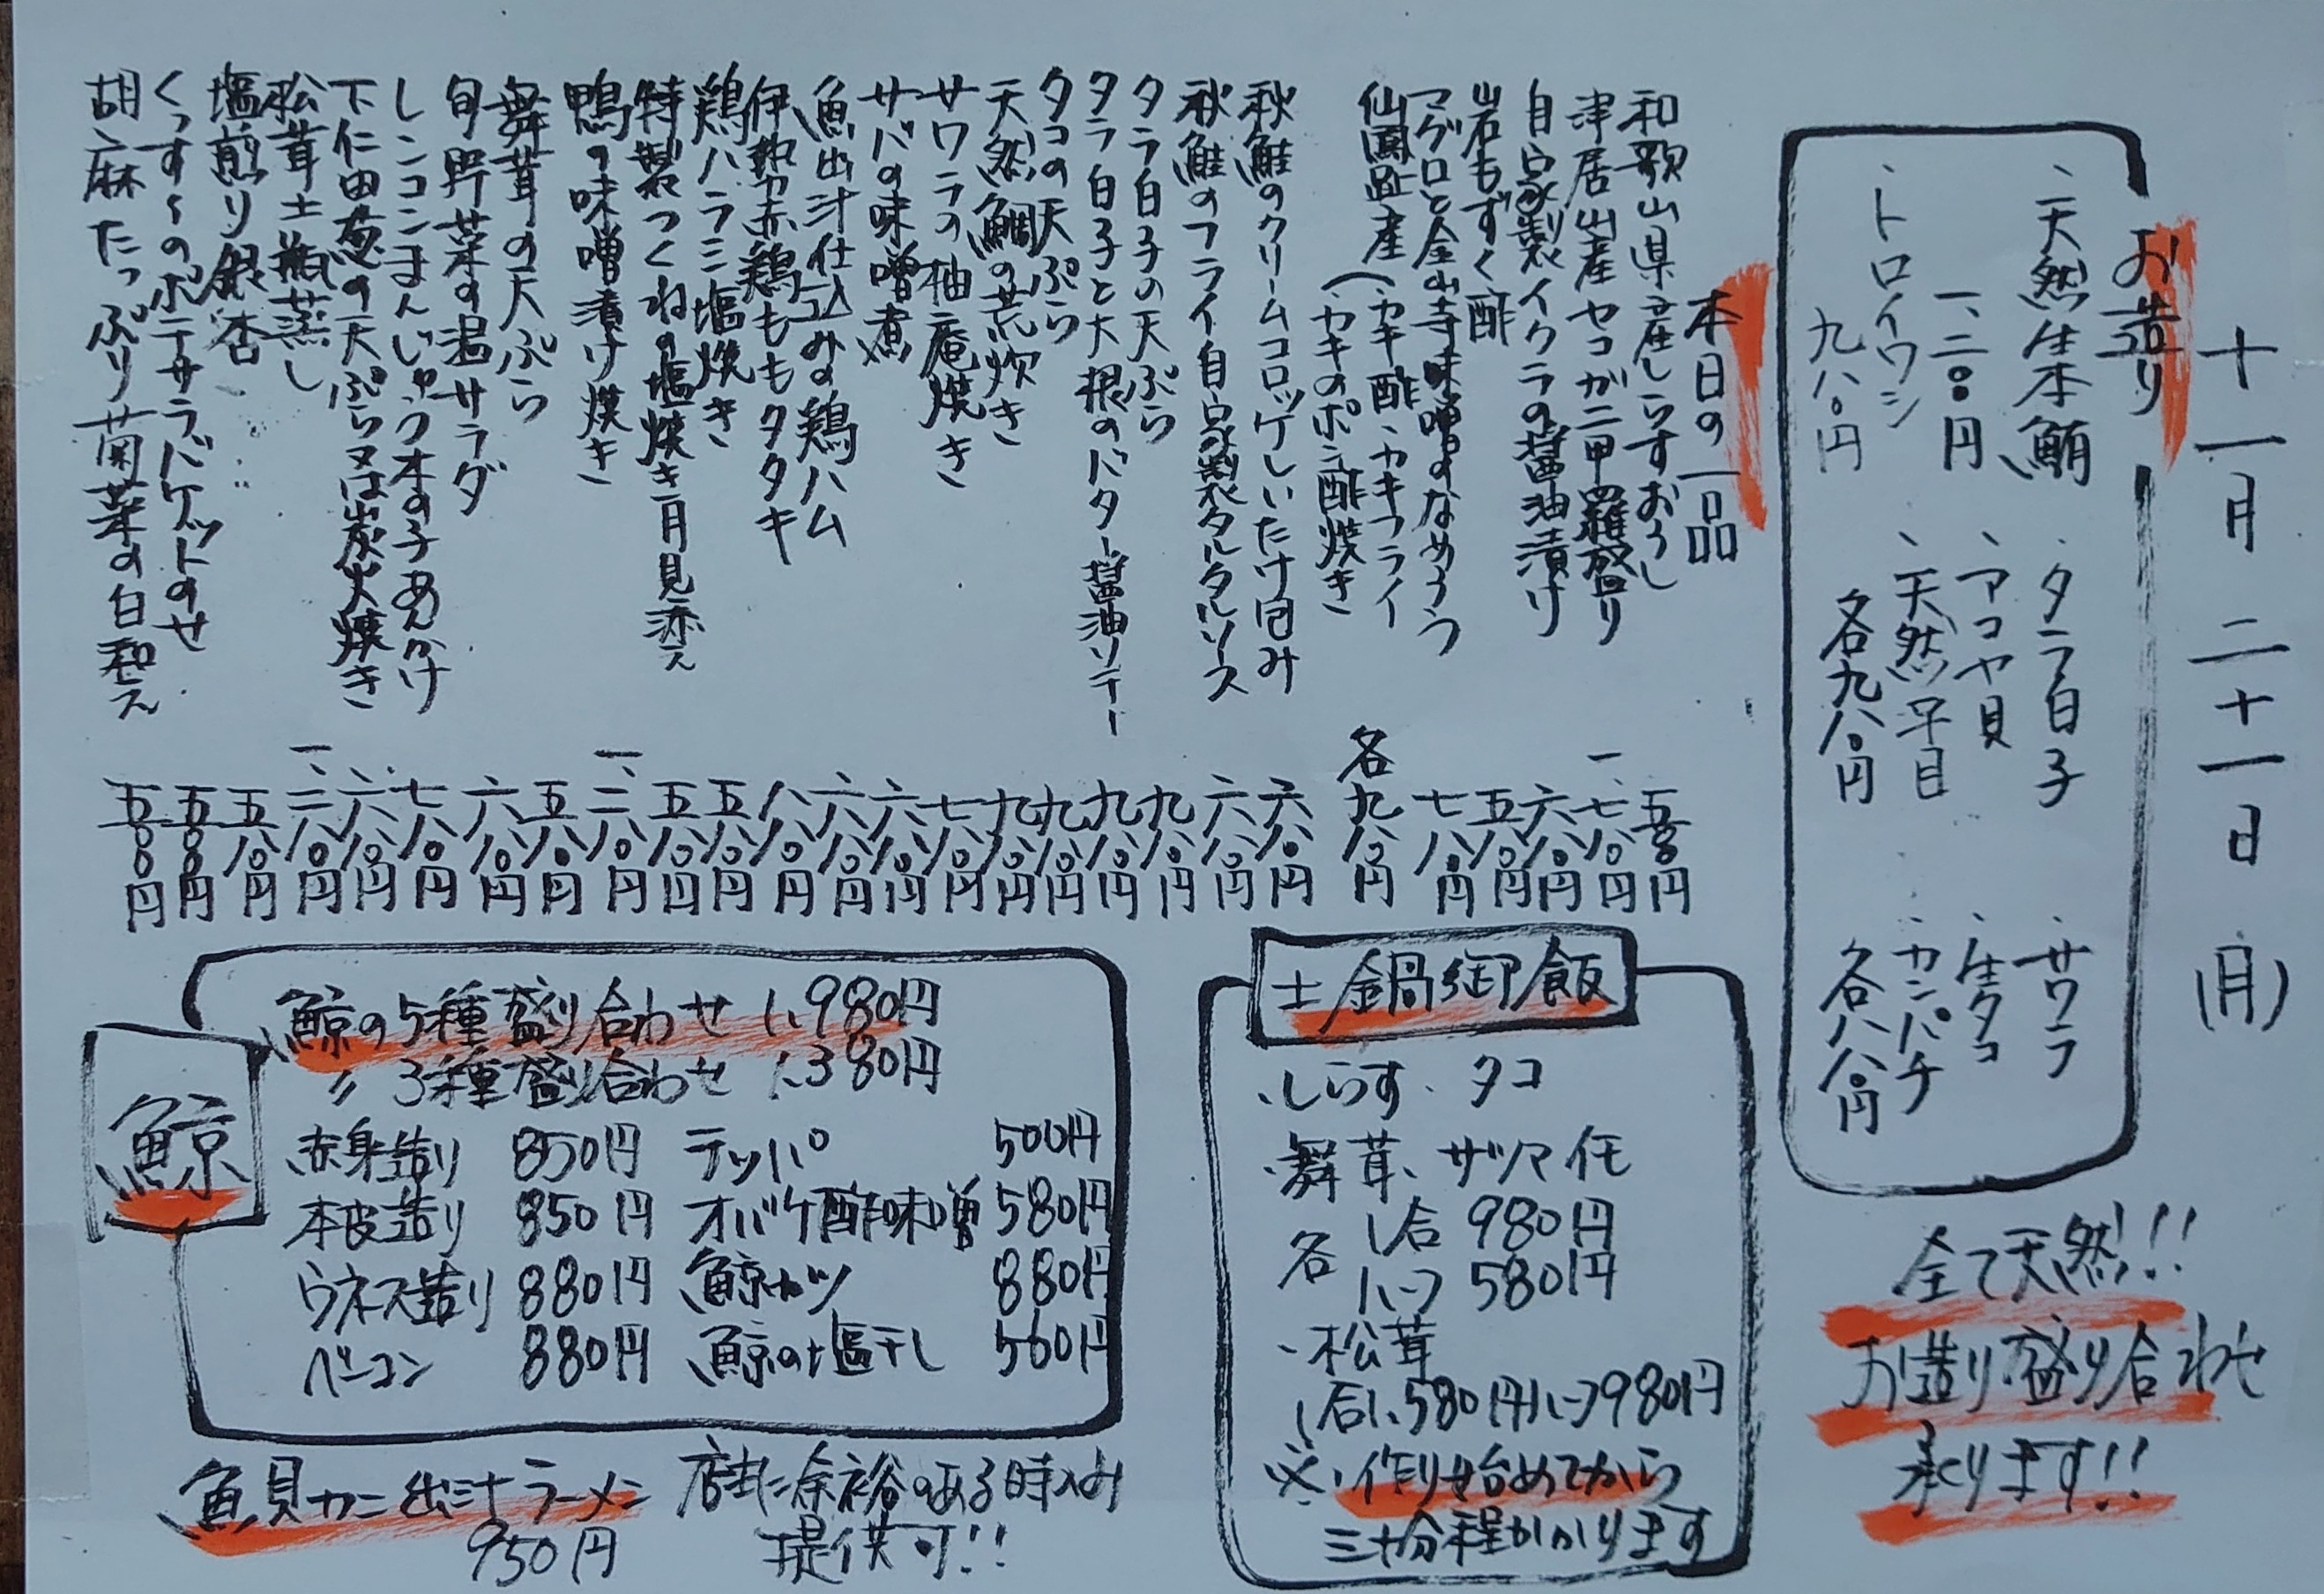 十一月二十一日(月)
お造り
、天然生本鮪
一、二八〇円
、トロイワシ
九八〇円
、タラ白子
、アコヤ貝
、天然平目
各九八〇円
、サワラ
、生タコ
、カンパチ
各八八〇円
全て天然!!
お造り盛り合わせ
承ります!!
本日の一品
和歌山県産しらすおろし 五八〇円
津居山産セコガニ甲羅盛り 一、七八〇円
自家製イクラの醤油漬け 六八〇円
岩もずく酢 五八〇円
マグロと金山寺味噌のなめろう 七八〇円
仙鳳趾産(カキ酢、カキフライ
(カキのポン酢焼き 各九八〇円
秋鮭のクリームコロッケしいたけ包み 六八〇円
秋鮭のフライ自家製タルタルソース 六八〇円
タラ白子の天ぷら 九八〇円
タラ白子と大根のバター醤油ソテー 九八〇円
タコの天ぷら 九八〇円
天然鯛の荒炊き 九八〇円
サワラの柚庵焼き 七八〇円
サバの味噌煮 六八〇円
魚出汁仕込みの鶏ハム 六八〇円
伊勢赤鶏ももタタキ 八八〇円
鶏ハラミ塩焼き 五八〇円
特製つくねの塩焼き月見添え 五八〇円
鴨の味噌漬け焼き 一、二八〇円
舞茸の天ぷら 五八〇円
旬野菜の温サラダ 六八〇円
レンコンまんじゅう木の子あんかけ 七八〇円
下仁田葱の天ぷら又は炭火焼き 六八〇円
松茸土瓶蒸し 一、二八〇円
塩煎り銀杏 五八〇円
くんすーのポテサラバケットのせ 五〇〇円
胡麻たっぷり菊菜の白和え 五〇〇円
土鍋御飯
、しらす、タコ
、舞茸、サツマイモ
各 1合 980円
ハーフ 580円
、松茸
1合1,580円ハーフ980円
※、作り始めてから
三十分程かかります
鯨
鯨の5種盛り合わせ 1,980円
〃 3種盛り合わせ 1,380円
赤身造り 850円 テッパ 500円
本皮造り 850円 オバケ酢味噌 580円
ウネス造り 880円 鯨カツ 880円
ベーコン 880円 鯨の塩干し 560円
魚貝カニ出汁ラーメン
950円
店主に余裕のある時のみ
提供可!!